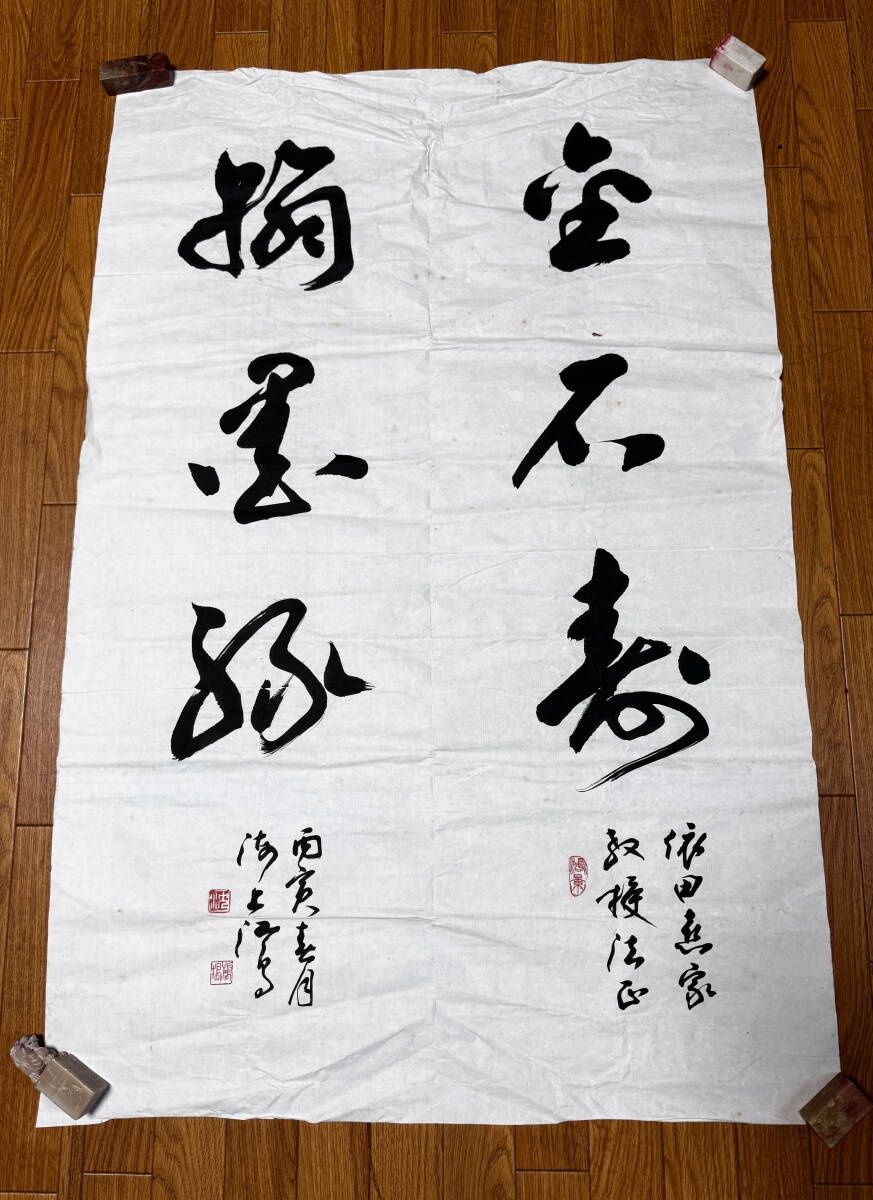 金石壽
翰墨缘
依田憙家
教授法正
丙寅春月
海上江鸟